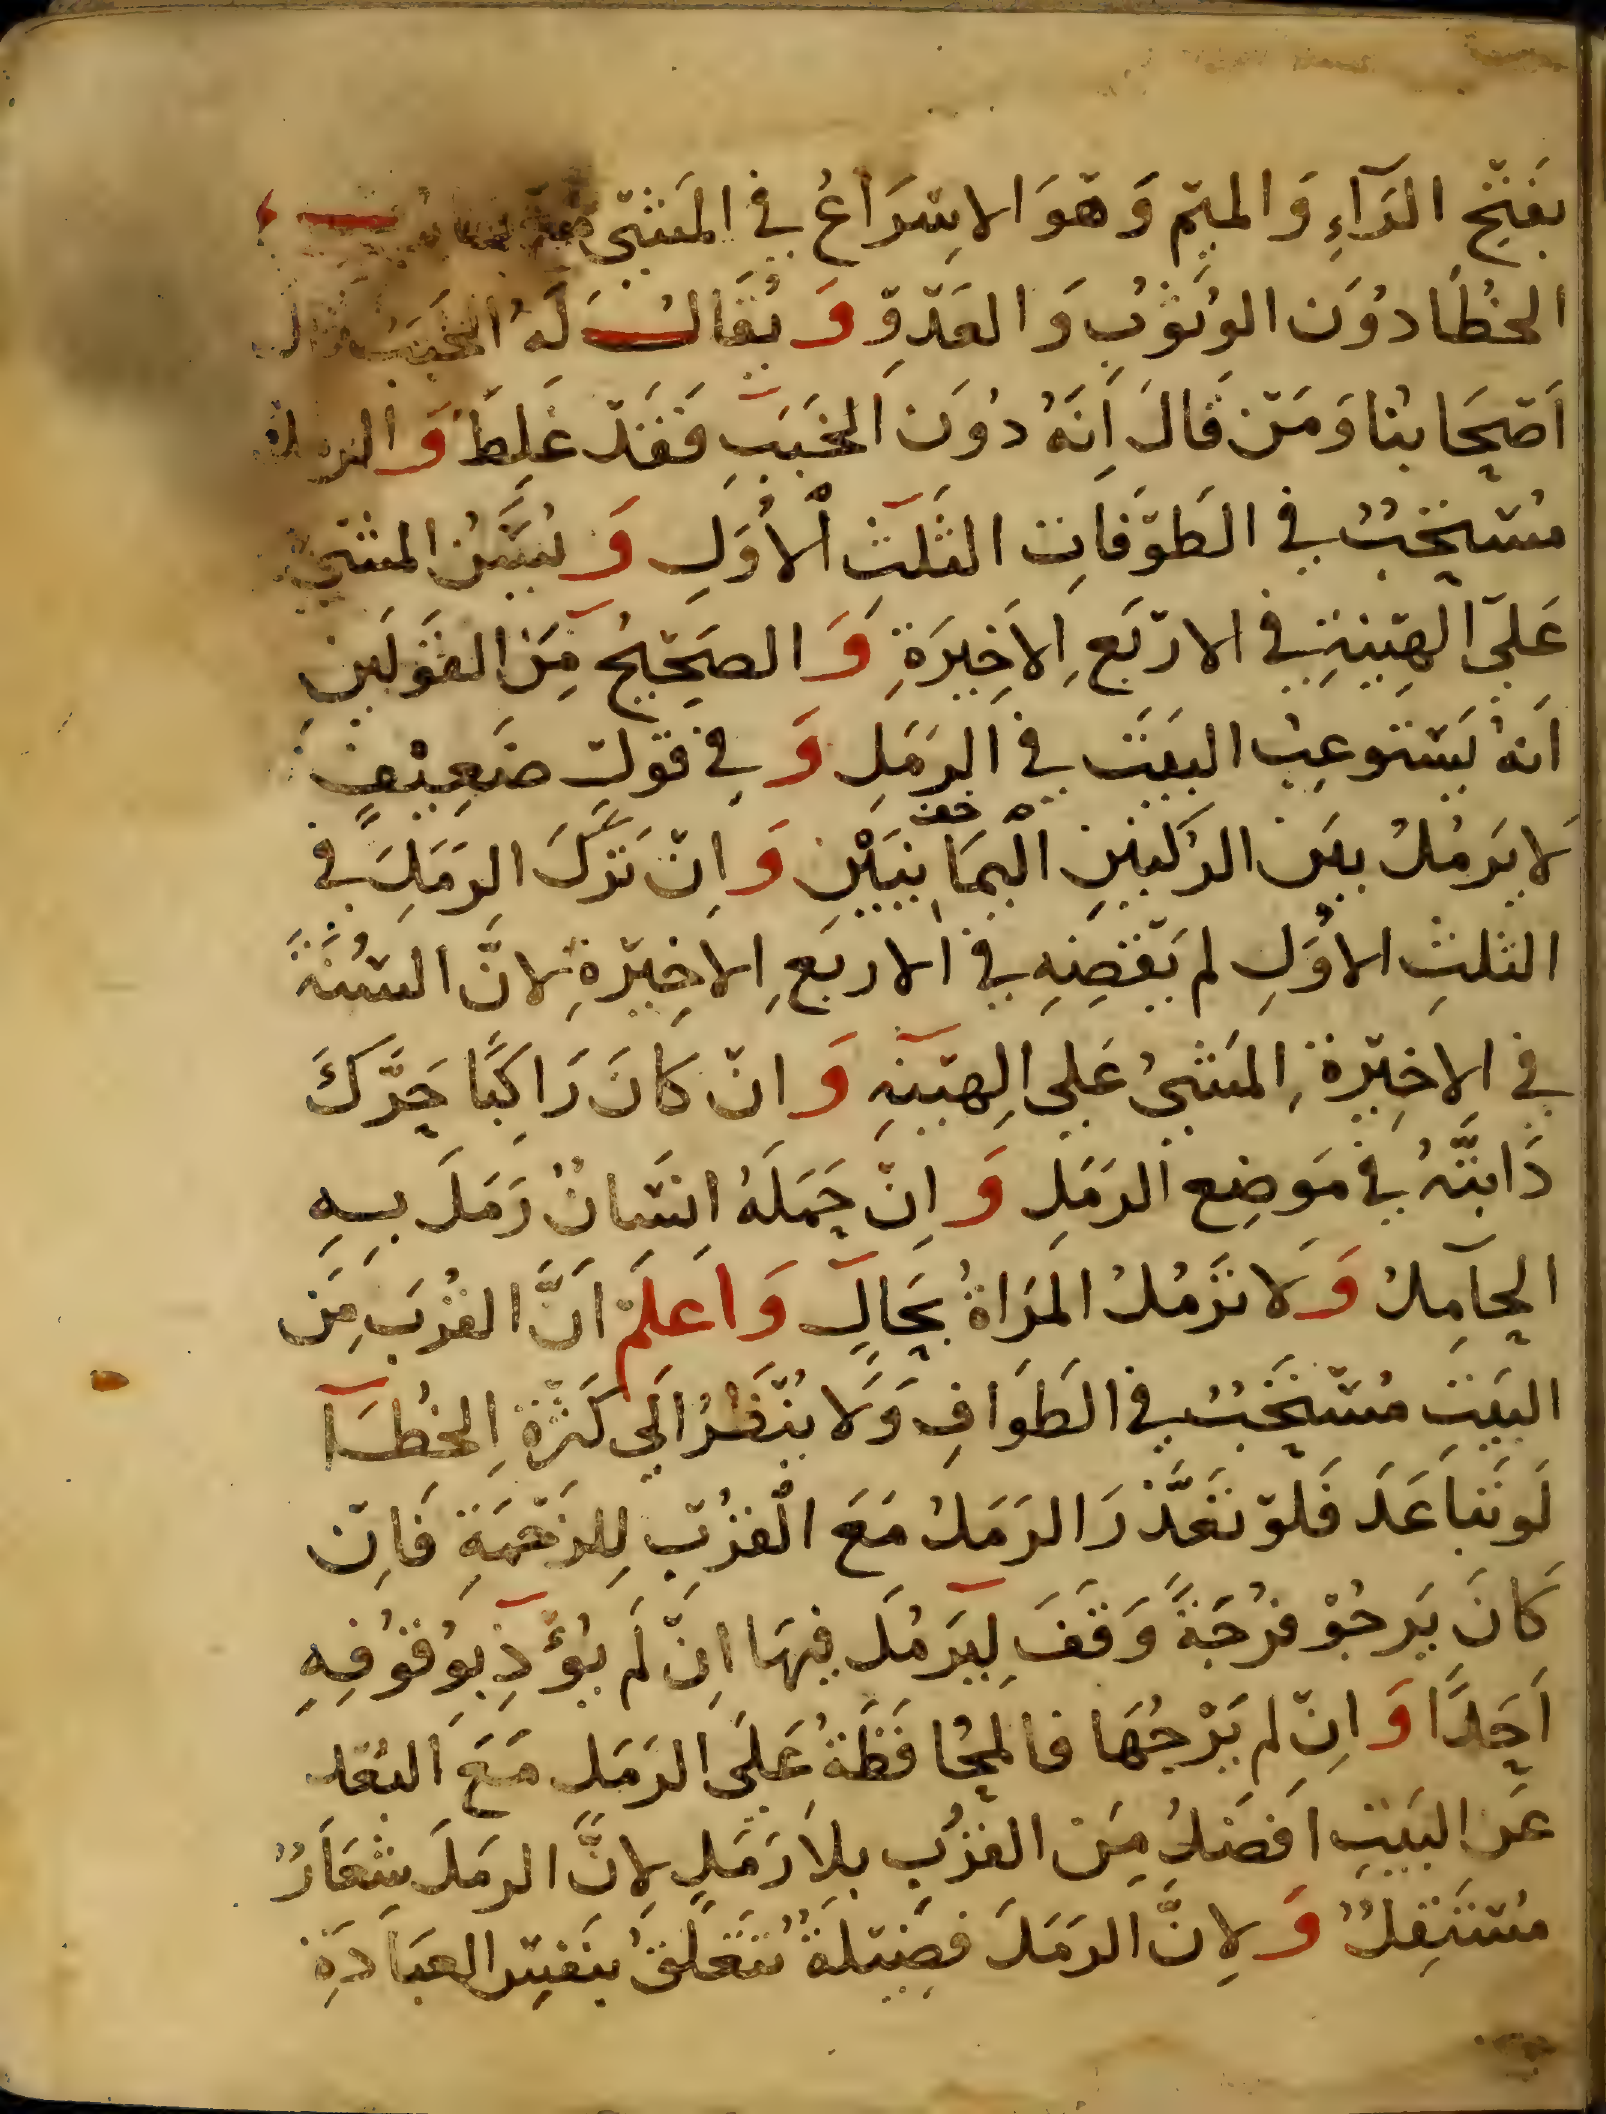 بفَتْحِ الرَّآءِ وَالميْم وَهْوَ الاسْرَاعُ فِي المَشْيِ
الخُطَا دُوْنَ الوُثُوْبِ وَالعَدْوِ وَيُقَالُ لَهُ الخَبَبُ قال
اَصْحَابُنا وَمَنْ قَالَ اِنَهُ دُوَن الخَبَبِ فَقَدْ غَلِطَ وَالرمل
مُسْتَحَبُ فِي الطَوْفَاتِ الثَلَثِ الْاُوَلِ وَيُسَنُ المشْيُ
عَلَى الهِيْنةِ فِي الارْبَعِ الاَخِيرَةِ وَالصَحِيْحُ مِنَ القَوْلَينِ
اَنهُ يَسْتَوعِبُ البَيْتَ فِي الرَمَلِ وَفِي قَوْلٍ ضَعِيْفٍ
لَا يَرمُلُ بيَن الركنَينِ الْيمَانِيَيْنِ وَاِنْ تَرَكَ الرَمَلَ فِي
الثلثِ الاُوَلِ لم يَقْضِهِ فِي الاربَعِ الاخِيْرَةِ لانَّ السُنَةَ
فِي الاخِيْرةِ المَشيُ عَلى الهِيْنَهِ وَانْ كَانَ رَاكِبًا حَرَّكَ
دَابَتَّهُ فِي مَوضِع الرَمَلِ وَاِنْ حَمَلَهُ انسَانٌ رَمَلَ بِهِ
الحآمِلُ وَلَا تَرْمُلُ المَرَاةُ بحَالٍ وَاعلَمْ اَنَّ القُرْبَ مِنَ
البَيتِ مُسْتَحَبُ فِي الطَوَافِ وَلَا يُنْظَرُ اِلَى كَثْرَةِ الخُطَآ
لَو تَبَاعَدَ فَلَوْ تعَذَّرَ الرَمَلُ مَعَ الْقُرْبِ لِلزَحْمَةِ فَاِنْ
كَانَ يَرجُوْ فُرْجَةً وَقَفَ لِيَرمُلَ فِيهَا اِنْ لَم يُؤذِ بِوُقوُفِهِ
اَحَدًا وَاِنْ لم يَرْجُهَا فالمحُافَظَةُ عَلَى الرَمَلِ مَعَ البُعْدِ
عَنِ البَيْتِ اَفضَلُ مِنَ القُرْبِ بِلَا رَمَلٍ لِانَّ الرمَلَ شِعَارٌ
مُسْتَقِلٌ وَلِانَّ الرَمَلَ فضِيْلةٌ تَتَعَلَقُ بِنَفْسِ العِبَادَةِ